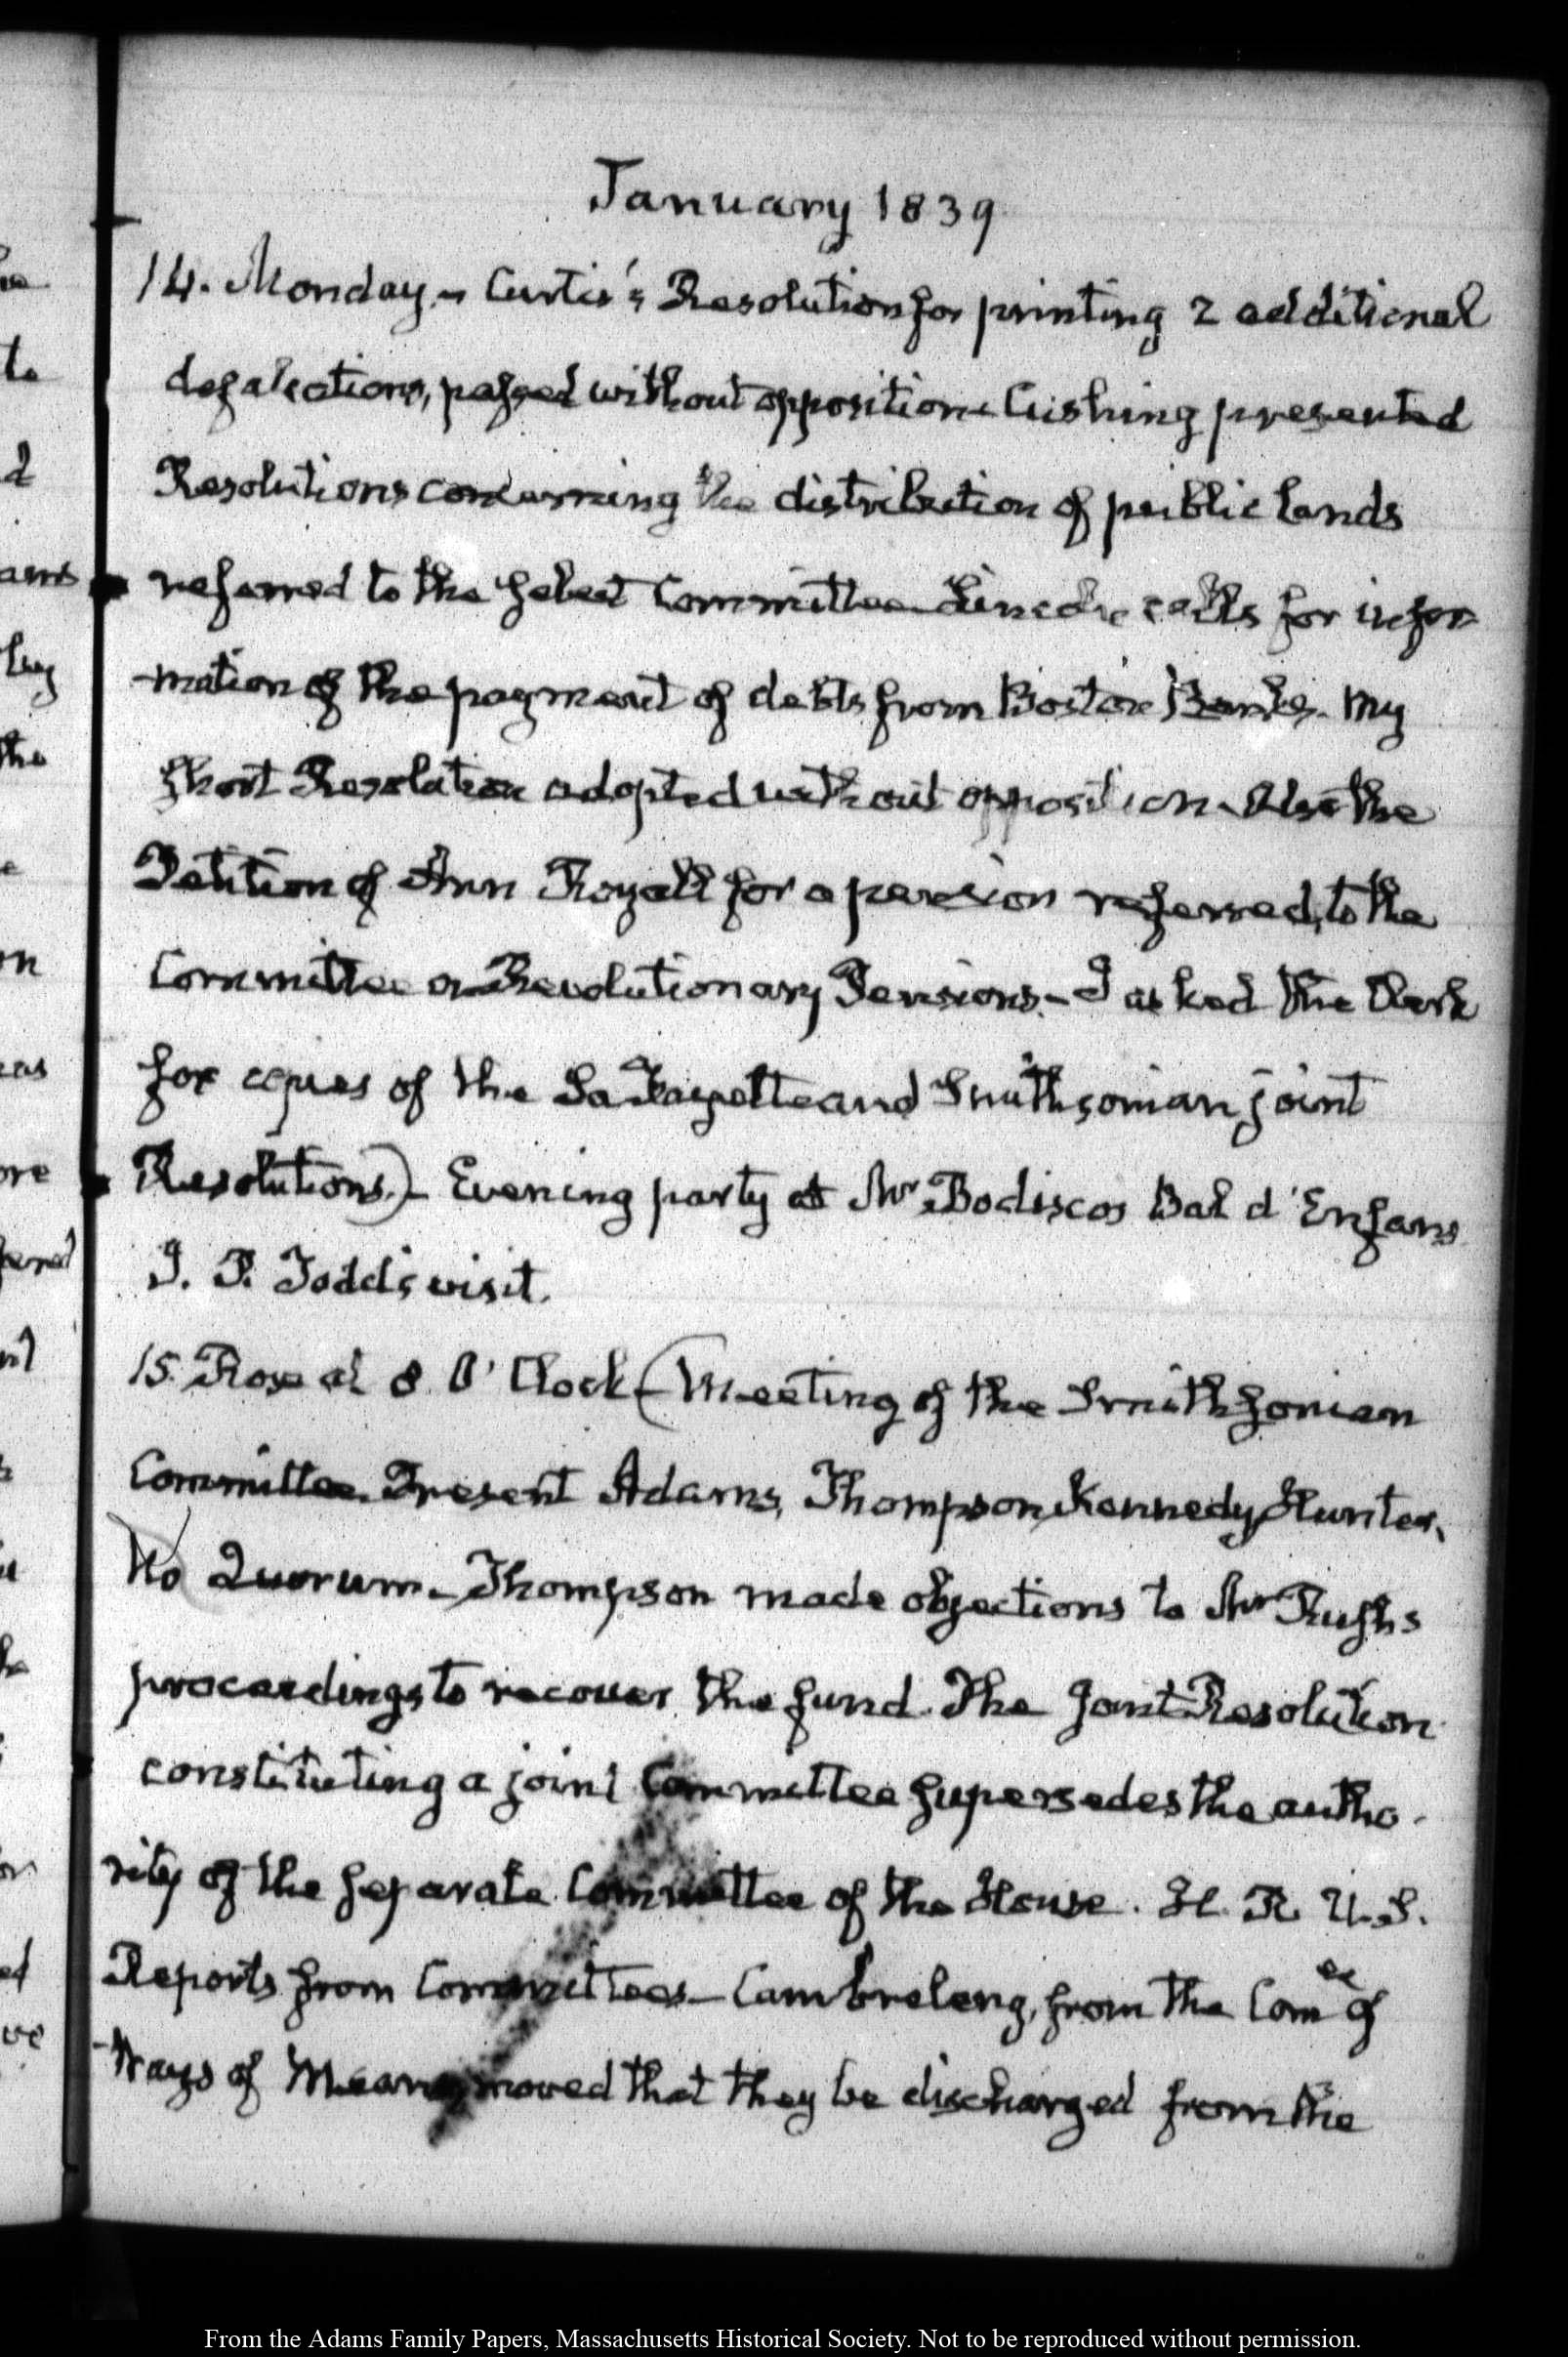 January 1839
14. Monday – Curtis's Resolution for printing 2 additional
defalcations, passed without opposition – Cushing presented
Resolutions concerning the distribution of public lands
referred to the Select Committee – calls for infor
-mation of the payment of debts from Boston Banks. My
short Resolution adopted without opposition – Also the
Petition of Ann Royall for a pension referred, to the
Committee on Revolutionary Pensions – I asked the Clerk
for copies of the La Fayette and Smithsonian joint
Resolutions) – Evening party at Mr Bodiscos Bal d'Enfans
J. P. Todd's visit.
15. Rose at 8. O'Clock – (Meeting of the Smithsonian
Committee. Present Adams, Thompson, Kennedy, Hunter,
No Quorum. – Thompson made objections to Mr Rush's
proceedings to recover the fund. The Joint Resolution
constituting a joint Committee supersedes the autho-
rity of the separate Committee of the House. H. R. U.S.
Reports from Committees – Cambreleng, from the Comee of
Ways of Means, moved that they be discharged from the
From the Adams Family Papers, Massachusetts Historical Society. Not to be reproduced without permission.